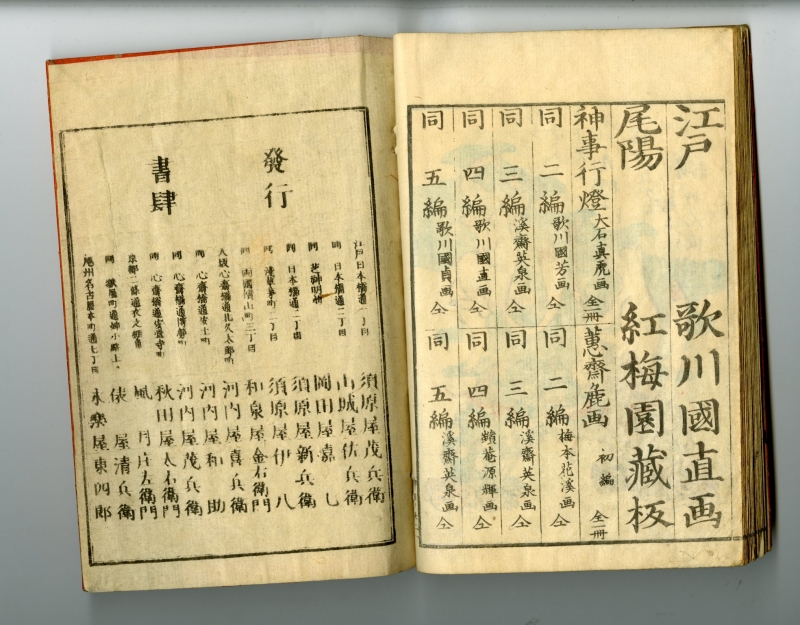 江戸 歌川國直画
尾陽 紅梅園藏板
神事行燈 大石真虎画 全一冊
同 二編 歌川國芳画 仝
同 三編 溪齋英泉画 仝
同 四編 歌川國直画 仝
同 五編 歌川國貞画 仝
蕙齋麁画 初編 全一冊
同 二編 梅本花溪画 仝
同 三編 溪齋英泉画 仝
同 四編 蘋菴源輝画 仝
同 五編 溪齋英泉画 仝
發行
書肆
江戸日本橋通一丁目 須原屋茂兵衛
同 日本橋通二丁目 山城屋佐兵衛
同 芝神明前 岡田屋嘉七
同 日本橋通二丁目 須原屋新兵衛
同 須原屋伊八
同 両國横山町三丁目 和泉屋金右衛門
大坂心齋橋通北久太郎町 河内屋喜兵衛
同 心齋橋通安土町 河内屋和助
同 心齋橋通博勞町 河内屋茂兵衛
同 心齋橋通安堂寺町 秋田屋太右衛門
京都 風月庄左衛門
同 俵屋清兵衛
尾州名古屋本町通七丁目 永樂屋東四郎